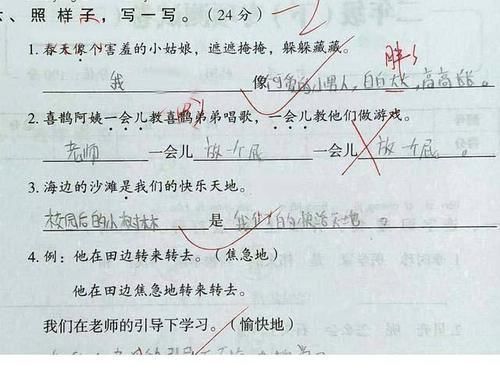 六、照样子，写一写。（24分） -2
1. 春天像个害羞的小姑娘，遮遮掩掩，躲躲藏藏。
胖
我 像 小男人，白白 ，高高
2. 喜鹊阿姨一会儿教喜鹊弟弟唱歌，一会儿教他们做游戏。
老师 一会儿 放一个屁 一会儿 放一个屁 。
3. 海边的沙滩是我们的快乐天地。
校园后的小树林 是 我们的快活天地
4. 例：他在田边转来转去。（焦急地）
他在田边焦急地转来转去。
我们在老师的引导下学习。（愉快地）